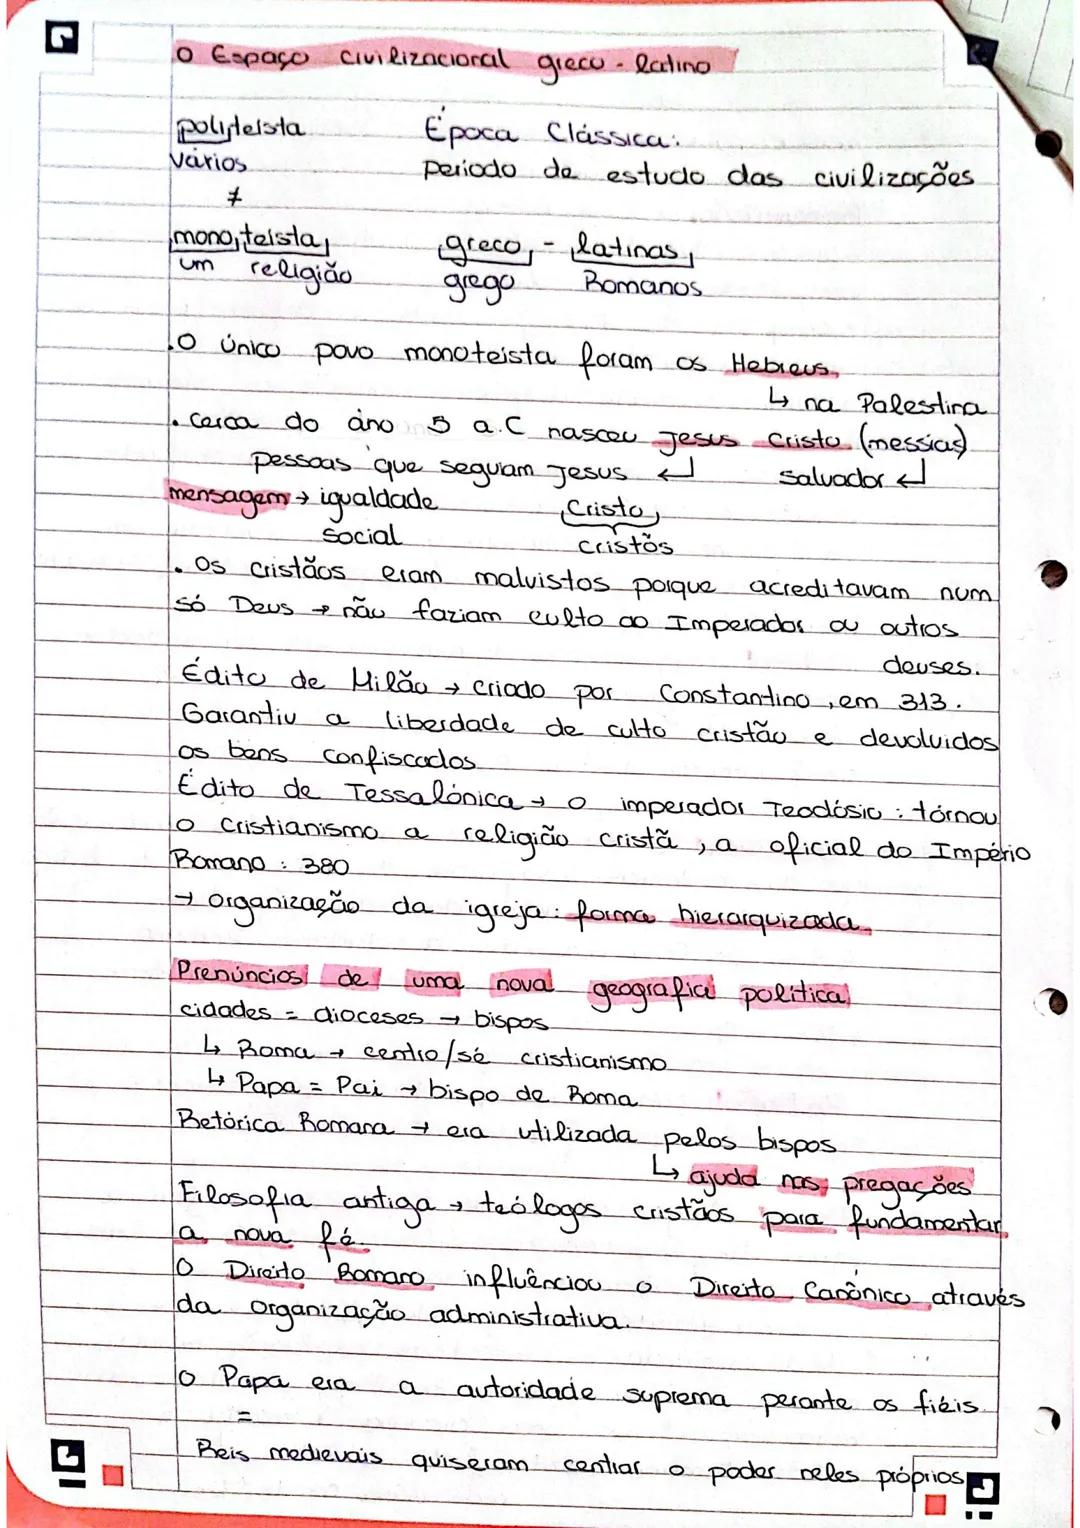 O Espaço civilizacional greco-latino
politeista Época Clássica:
vários Periodo de estudo das civilizações
≠
monoteista greco - latinas
um religião grego Romanos
.O único povo monoteista foram os Hebreus.
↳ na Palestina
. Cerca do ano 5 a.C nasceu Jesus Cristo (messias)
pessoas que seguiam Jesus ↵ salvador ↵
mensagem → igualdade Cristo
social cristãos
. Os cristãos eram malvistos porque acreditavam num
só Deus → não faziam culto ao Imperador ou outros
deuses.
Édito de Milão → criado por Constantino, em 313.
Garantiu a liberdade de culto cristão e devoluidos
os bens confiscados
Édito de Tessalónica → o imperador Teodósio: tórnou
o Cristianismo a religião cristã, a oficial do Império
Romano: 380
→ organização da igreja: forma hierarquizada.
Prenúncios de uma nova geografia política
cidades = dioceses → bispos
↳ Roma → centro/sé cristianismo
↳ Papa = Pai → bispo de Roma
Retórica Romana → era utilizada pelos bispos
↳ ajuda nas pregações
Filosofia antiga → teólogos cristãos para fundamentar
a nova fé.
O Direito Romano influênciou o Direito Canônico através
da organização administrativa.
O Papa era a autoridade suprema perante os fiéis
=
Reis medievais quiseram centrar o poder neles próprios